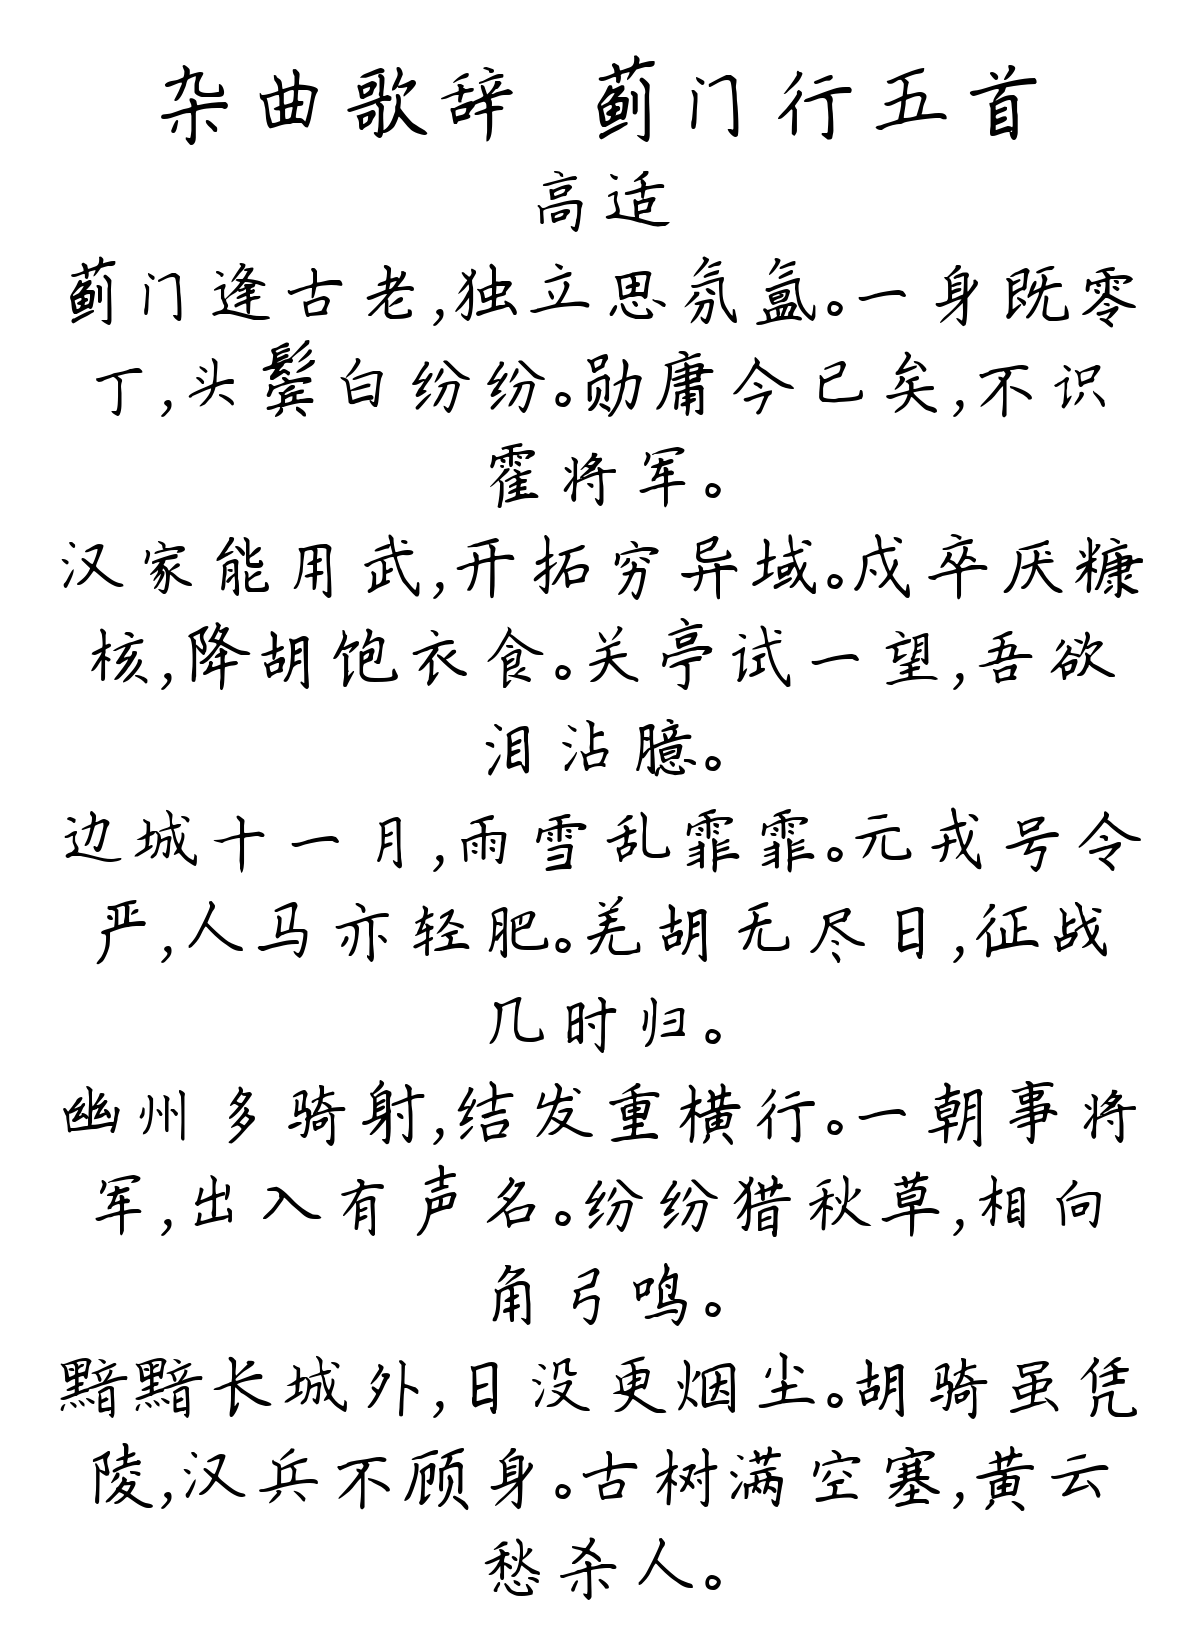 杂曲歌辞 蓟门行五首
高适
蓟门逢古老,独立思氛氲。一身既零
丁,头鬓白纷纷。勋庸今已矣,不识
霍将军。
汉家能用武,开拓穷异域。戍卒厌糠
核,降胡饱衣食。关亭试一望,吾欲
泪沾臆。
边城十一月,雨雪乱霏霏。元戎号令
严,人马亦轻肥。羌胡无尽日,征战
几时归。
幽州多骑射,结发重横行。一朝事将
军,出入有声名。纷纷猎秋草,相向
角弓鸣。
黯黯长城外,日没更烟尘。胡骑虽凭
陵,汉兵不顾身。古树满空塞,黄云
愁杀人。